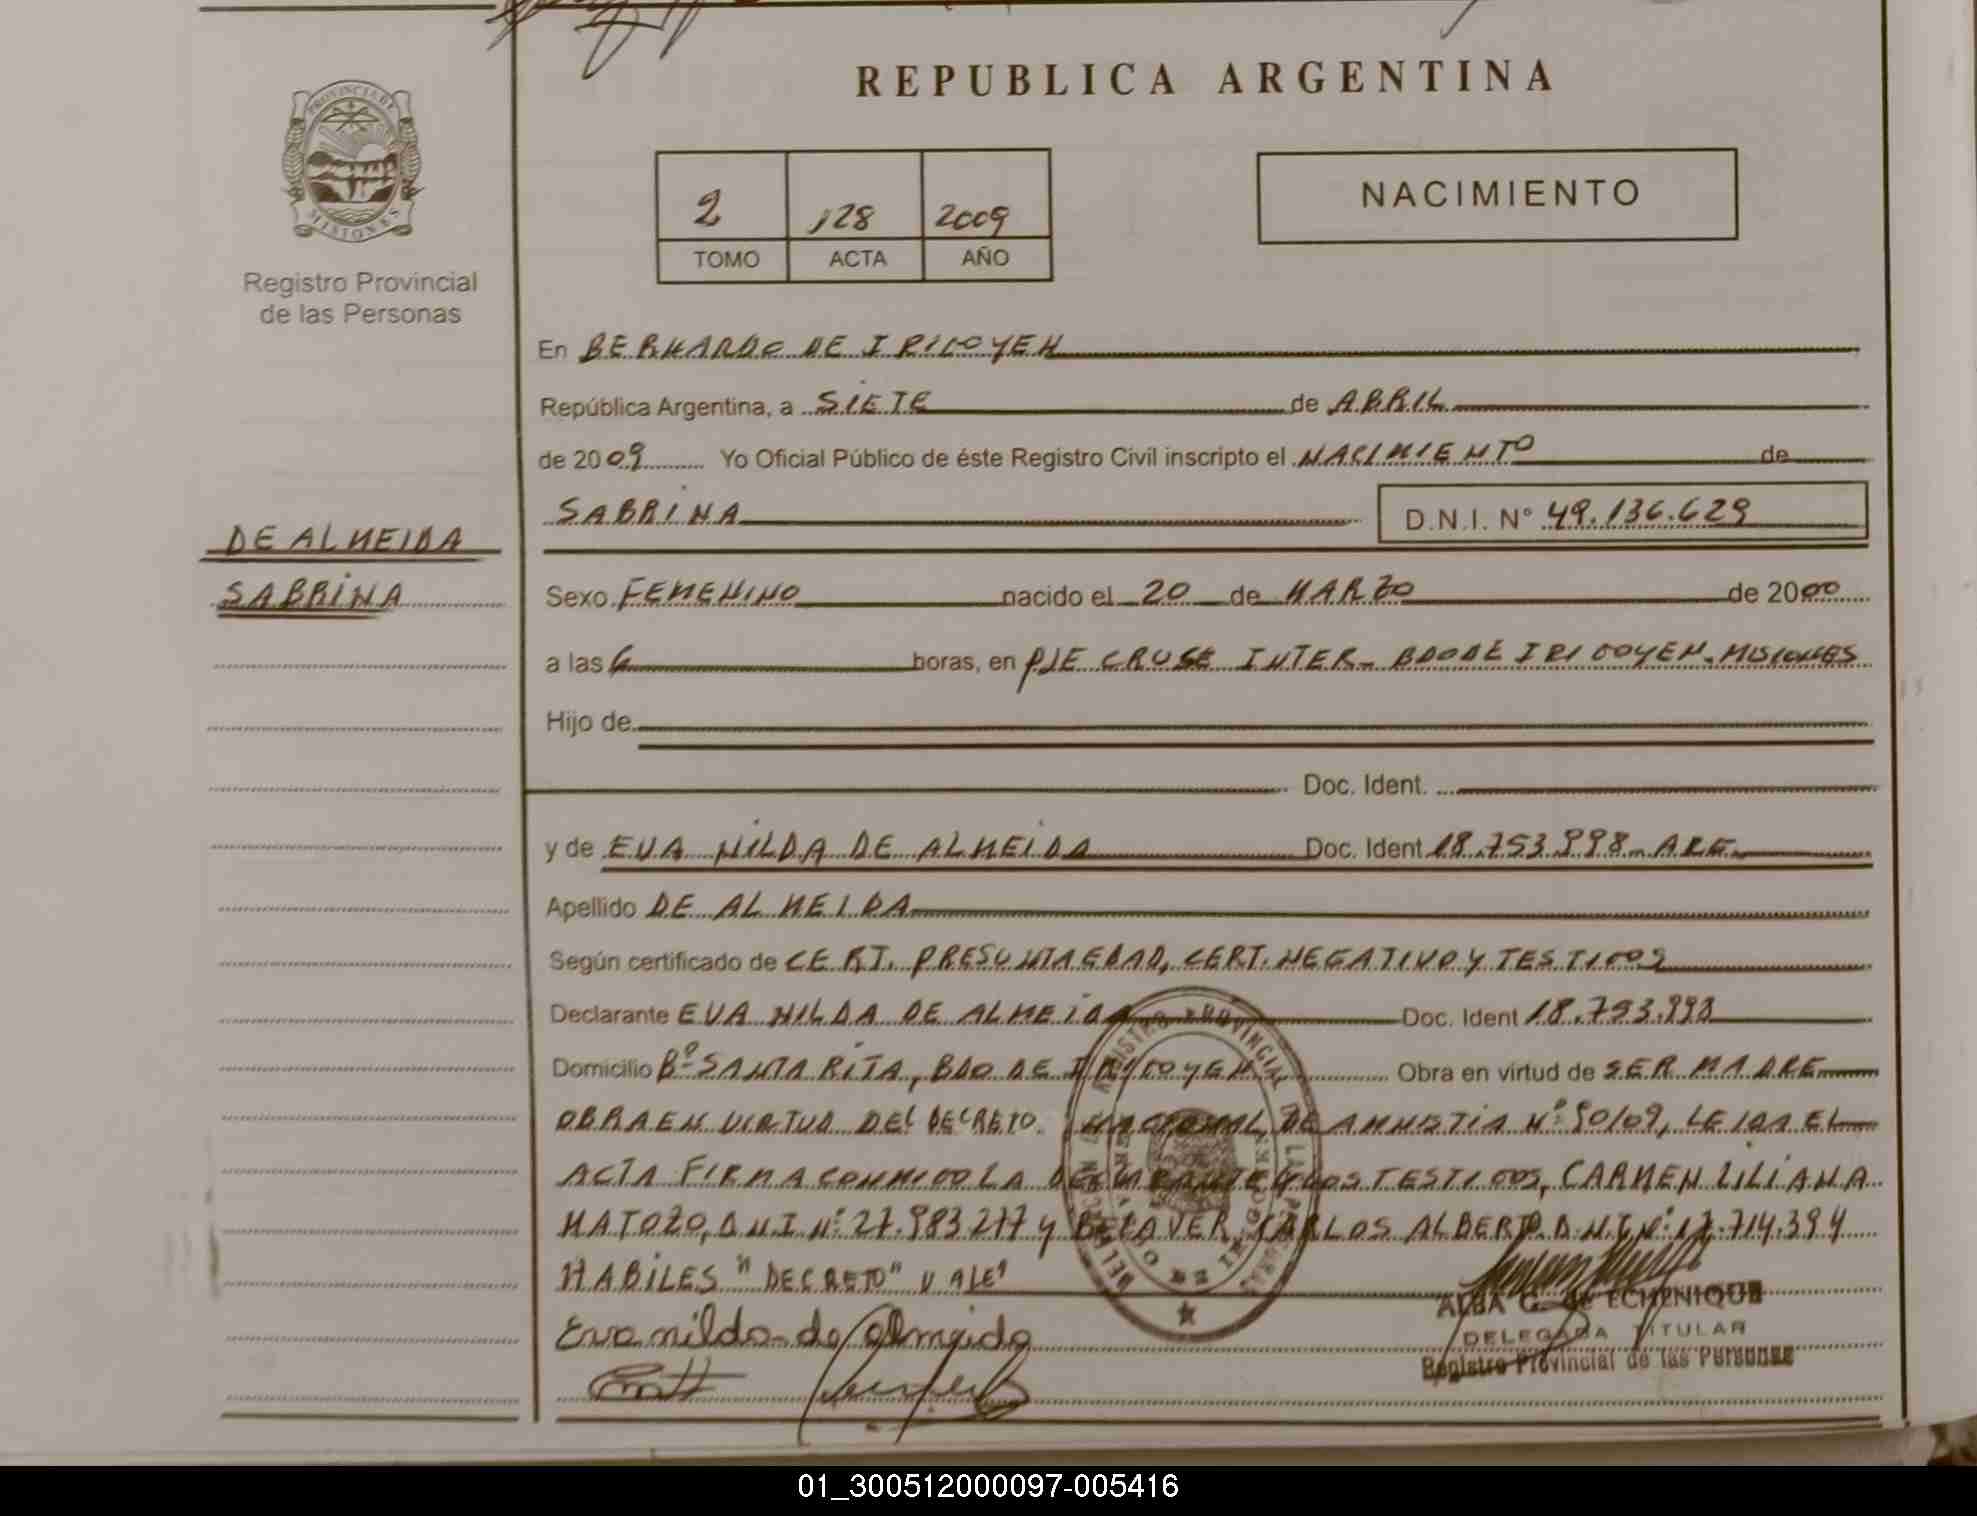 REPUBLICA ARGENTINA
PROVINCIA DE MISIONES
Registro Provincial
de las Personas
2 128 2009
TOMO ACTA AÑO
NACIMIENTO
En BERNARDO DE IRIGOYEN
República Argentina, a SIETE de ABRIL
de 2009 Yo Oficial Público de éste Registro Civil inscripto el NACIMIENTO de
SABRINA D.N.I. N° 49.136.629
DE ALMEIDA
SABRINA
Sexo FEMENINO nacido el 20 de MARZO de 2000
a las 6 horas, en PJE CRUSE INTER- BDO DE IRIGOYEN-MISIONES
Hijo de
Doc. Ident.
y de EVA NILDA DE ALMEIDA Doc. Ident 18.753.998-ARG
Apellido DE ALMEIDA
Según certificado de CERT. PRESUNTA EDAD, CERT. NEGATIVO Y TESTIGOS
Declarante EVA NILDA DE ALMEIDA Doc. Ident 18.753.998
Domicilio B° SANTA RITA, BDO DE IRIGOYEN Obra en virtud de SER MADRE
OBRA EN VIRTUD DEL DECRETO NACIONAL DE AMNISTIA N° 90/09, LEIDA EL
ACTA FIRMA CONMIGO LA DECLARANTE Y LOS TESTIGOS, CARMEN LILIANA
MATOZO, D.N.I N° 27.983277 y CARLOS ALBERTO D.N.I N° 17.714.394
HABILES "DECRETO" VALE
Eva nilda de Almeida
ALBA G. de ECHENIQUE
DELEGADA TITULAR
Registro Provincial de las Personas
01_300512000097-005416